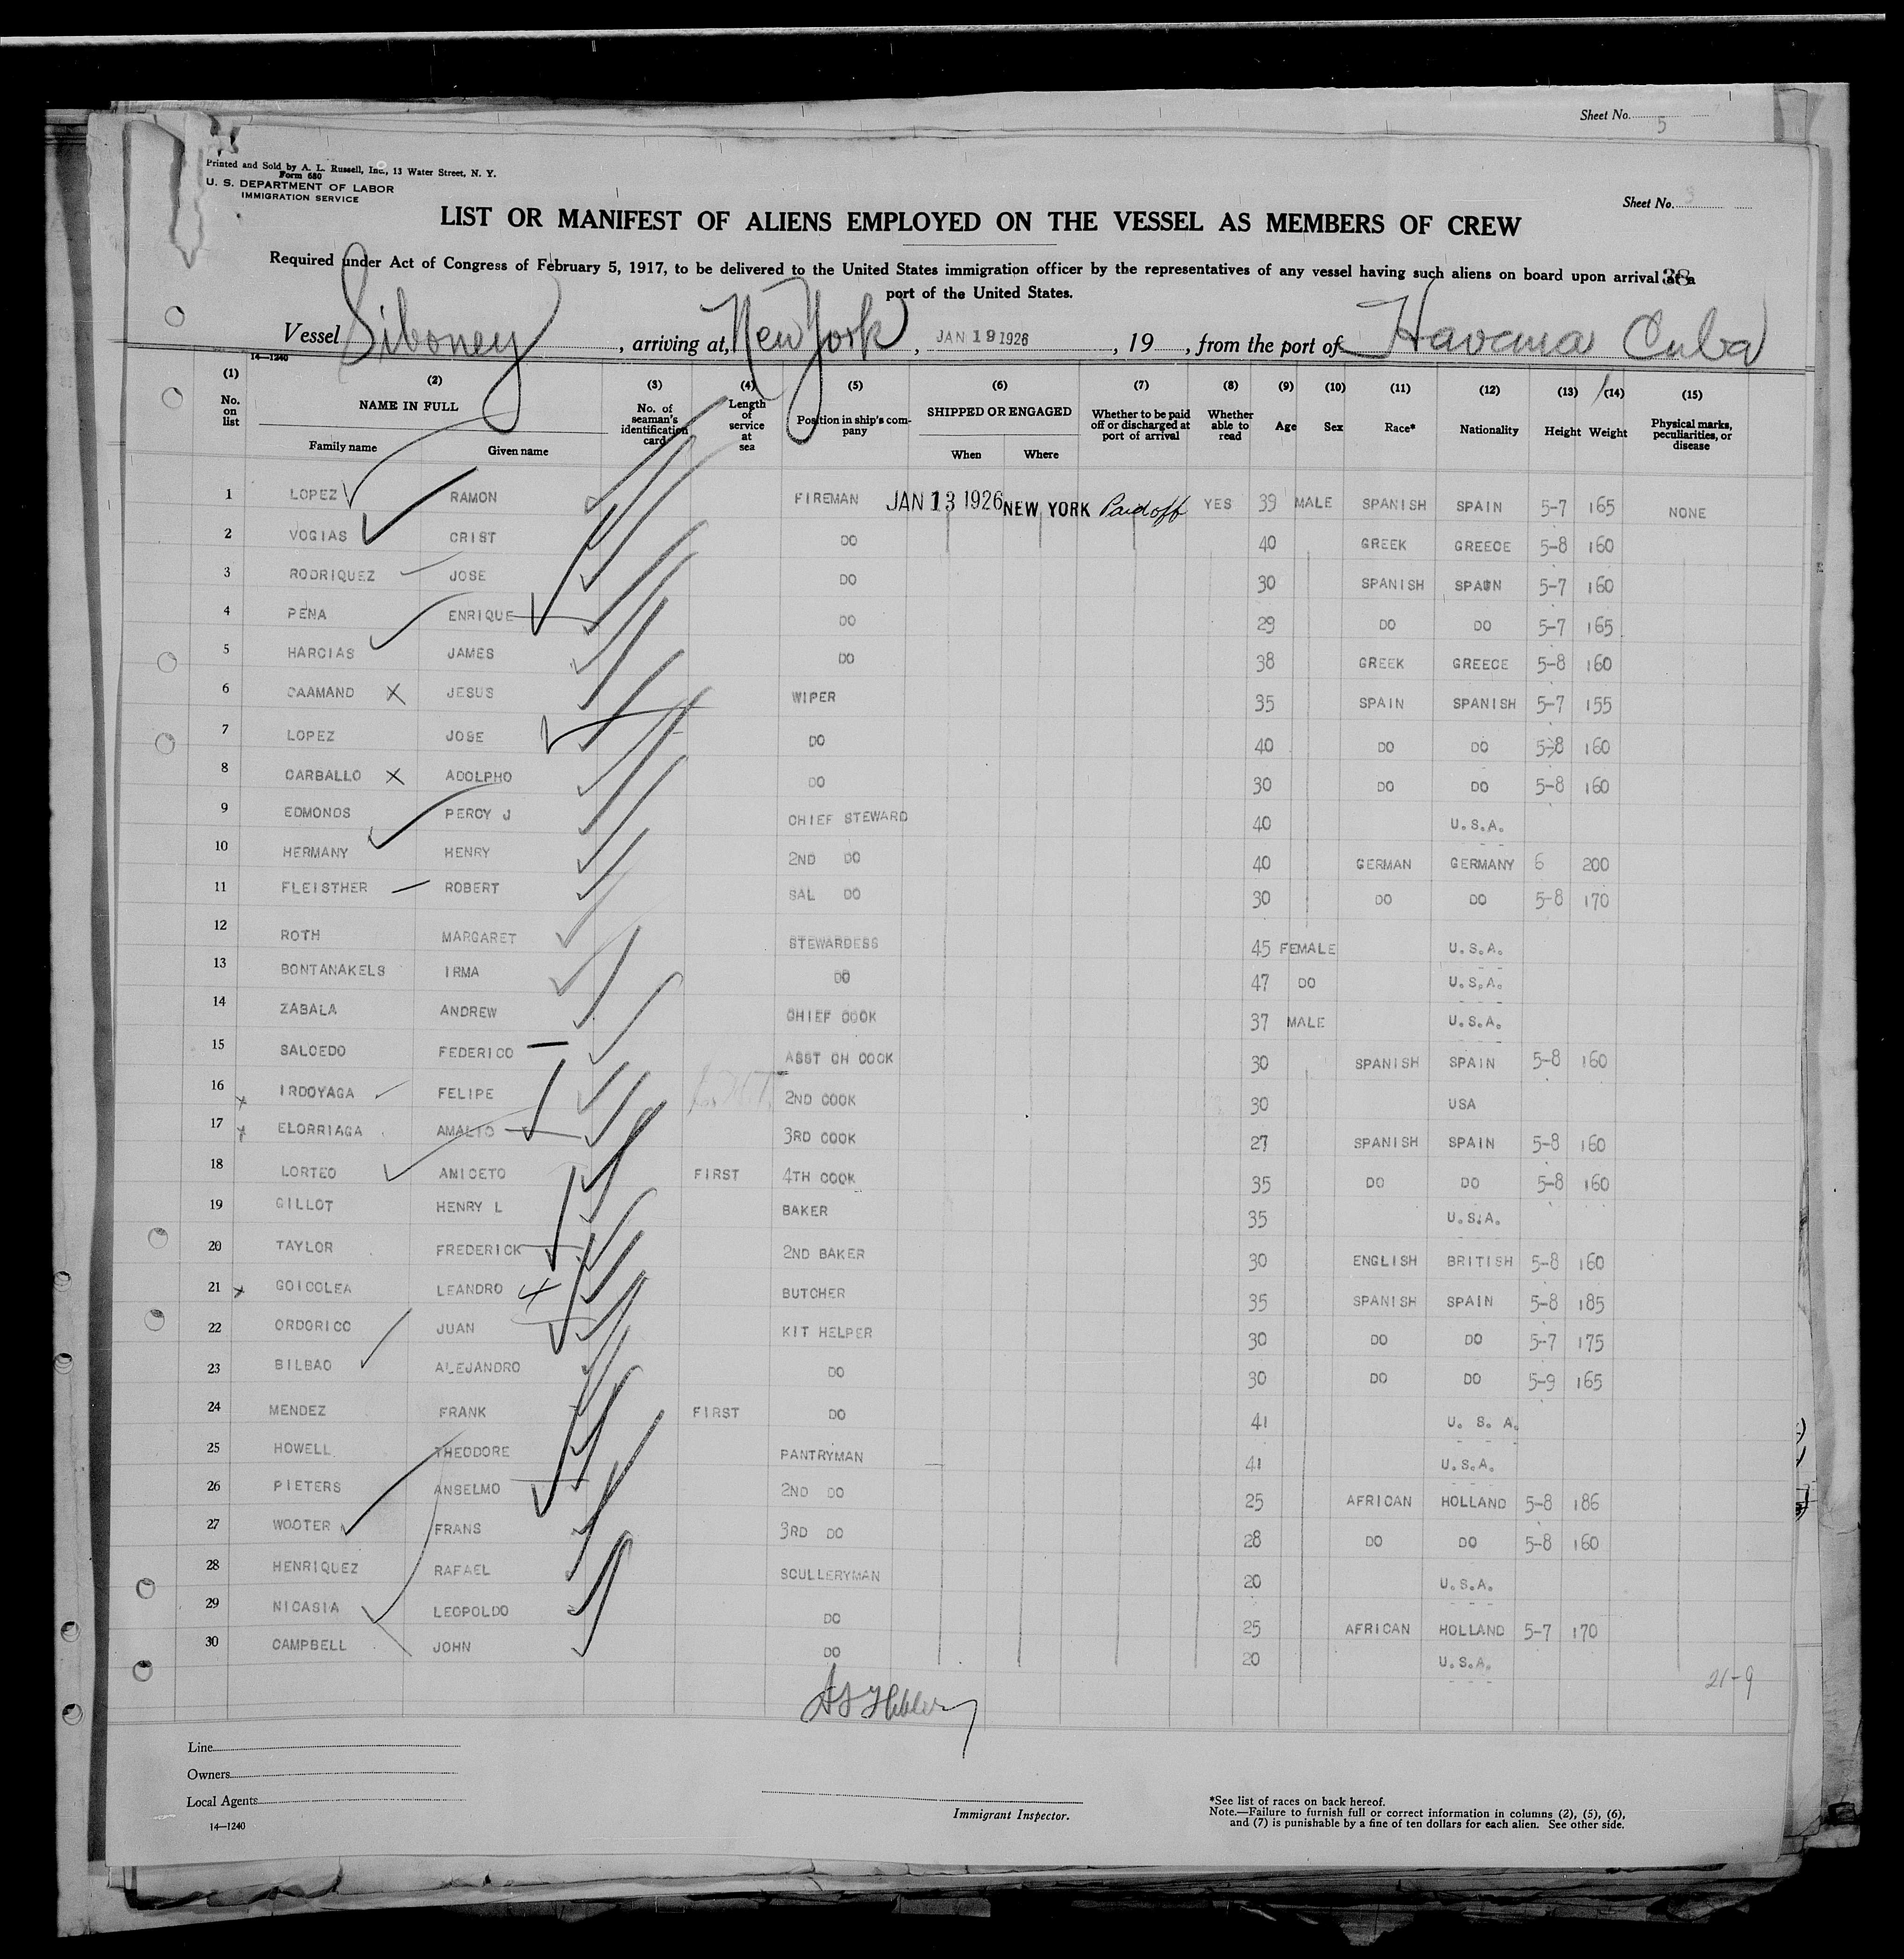 Sheet No. 5
Printed and Sold by A. L. Russell, Inc., 13 Water Street, N. Y.
Form 680
U. S. DEPARTMENT OF LABOR
IMMIGRATION SERVICE
Sheet No.
LIST OR MANIFEST OF ALIENS EMPLOYED ON THE VESSEL AS MEMBERS OF CREW
Required under Act of Congress of February 5, 1917, to be delivered to the United States immigration officer by the representatives of any vessel having such aliens on board upon arrival at a
port of the United States.
38
Vessel Siboney, arriving at, New York, JAN 19 1926, 19 , from the port of Havana Cuba
14—1240
(1) No. on list (2) NAME IN FULL Family name Given name (3) No. of seaman's identification card (4) Length of service at sea (5) Position in ship's company (6) SHIPPED OR ENGAGED When Where (7) Whether to be paid off or discharged at port of arrival (8) Whether able to read (9) Age (10) Sex (11) Race* (12) Nationality (13) Height (14) Weight (15) Physical marks, peculiarities, or disease
1 LOPEZ RAMON FIREMAN JAN 13 1926 NEW YORK Paid off YES 39 MALE SPANISH SPAIN 5-7 165 NONE
2 VOGIAS CRIST DO 40 GREEK GREECE 5-8 160
3 RODRIQUEZ JOSE DO 30 SPANISH SPAIN 5-7 160
4 PENA ENRIQUE DO 29 DO DO 5-7 165
5 HARCIAS JAMES DO 38 GREEK GREECE 5-8 160
6 CAAMAND X JESUS WIPER 35 SPAIN SPANISH 5-7 155
7 LOPEZ JOSE DO 40 DO DO 5-8 160
8 CARBALLO X ADOLPHO DO 30 DO DO 5-8 160
9 EDMONDS PERCY J CHIEF STEWARD 40 U.S.A.
10 HERMANY HENRY 2ND DO 40 GERMAN GERMANY 6 200
11 FLEISTHER ROBERT SAL DO 30 DO DO 5-8 170
12 ROTH MARGARET STEWARDESS 45 FEMALE U.S.A.
13 BONTANAKELS IRMA DO 47 DO U.S.A.
14 ZABALA ANDREW CHIEF COOK 37 MALE U.S.A.
15 SALCEDO FEDERICO ASST CH COOK 30 SPANISH SPAIN 5-8 160
16 IRDOYAGA FELIPE 2ND COOK 30 USA
17 ELORRIAGA AMALIO 3RD COOK 27 SPANISH SPAIN 5-8 160
18 LORTEO AMICETO FIRST 4TH COOK 35 DO DO 5-8 160
19 GILLOT HENRY L BAKER 35 U.S.A.
20 TAYLOR FREDERICK 2ND BAKER 30 ENGLISH BRITISH 5-8 160
21 GOICOLEA LEANDRO BUTCHER 35 SPANISH SPAIN 5-8 185
22 ORDORICO JUAN KIT HELPER 30 DO DO 5-7 175
23 BILBAO ALEJANDRO DO 30 DO DO 5-9 165
24 MENDEZ FRANK FIRST DO 41 U. S. A.
25 HOWELL THEODORE PANTRYMAN 41 U.S.A.
26 PIETERS ANSELMO 2ND DO 25 AFRICAN HOLLAND 5-8 186
27 WOOTER FRANS 3RD DO 28 DO DO 5-8 160
28 HENRIQUEZ RAFAEL SCULLERYMAN 20 U.S.A.
29 NICASIA LEOPOLDO DO 25 AFRICAN HOLLAND 5-7 170
30 CAMPBELL JOHN DO 20 U.S.A.
21-9
Line
Owners
Local Agents
14—1240
Immigrant Inspector.
*See list of races on back hereof.
Note.—Failure to furnish full or correct information in columns (2), (5), (6),
and (7) is punishable by a fine of ten dollars for each alien. See other side.